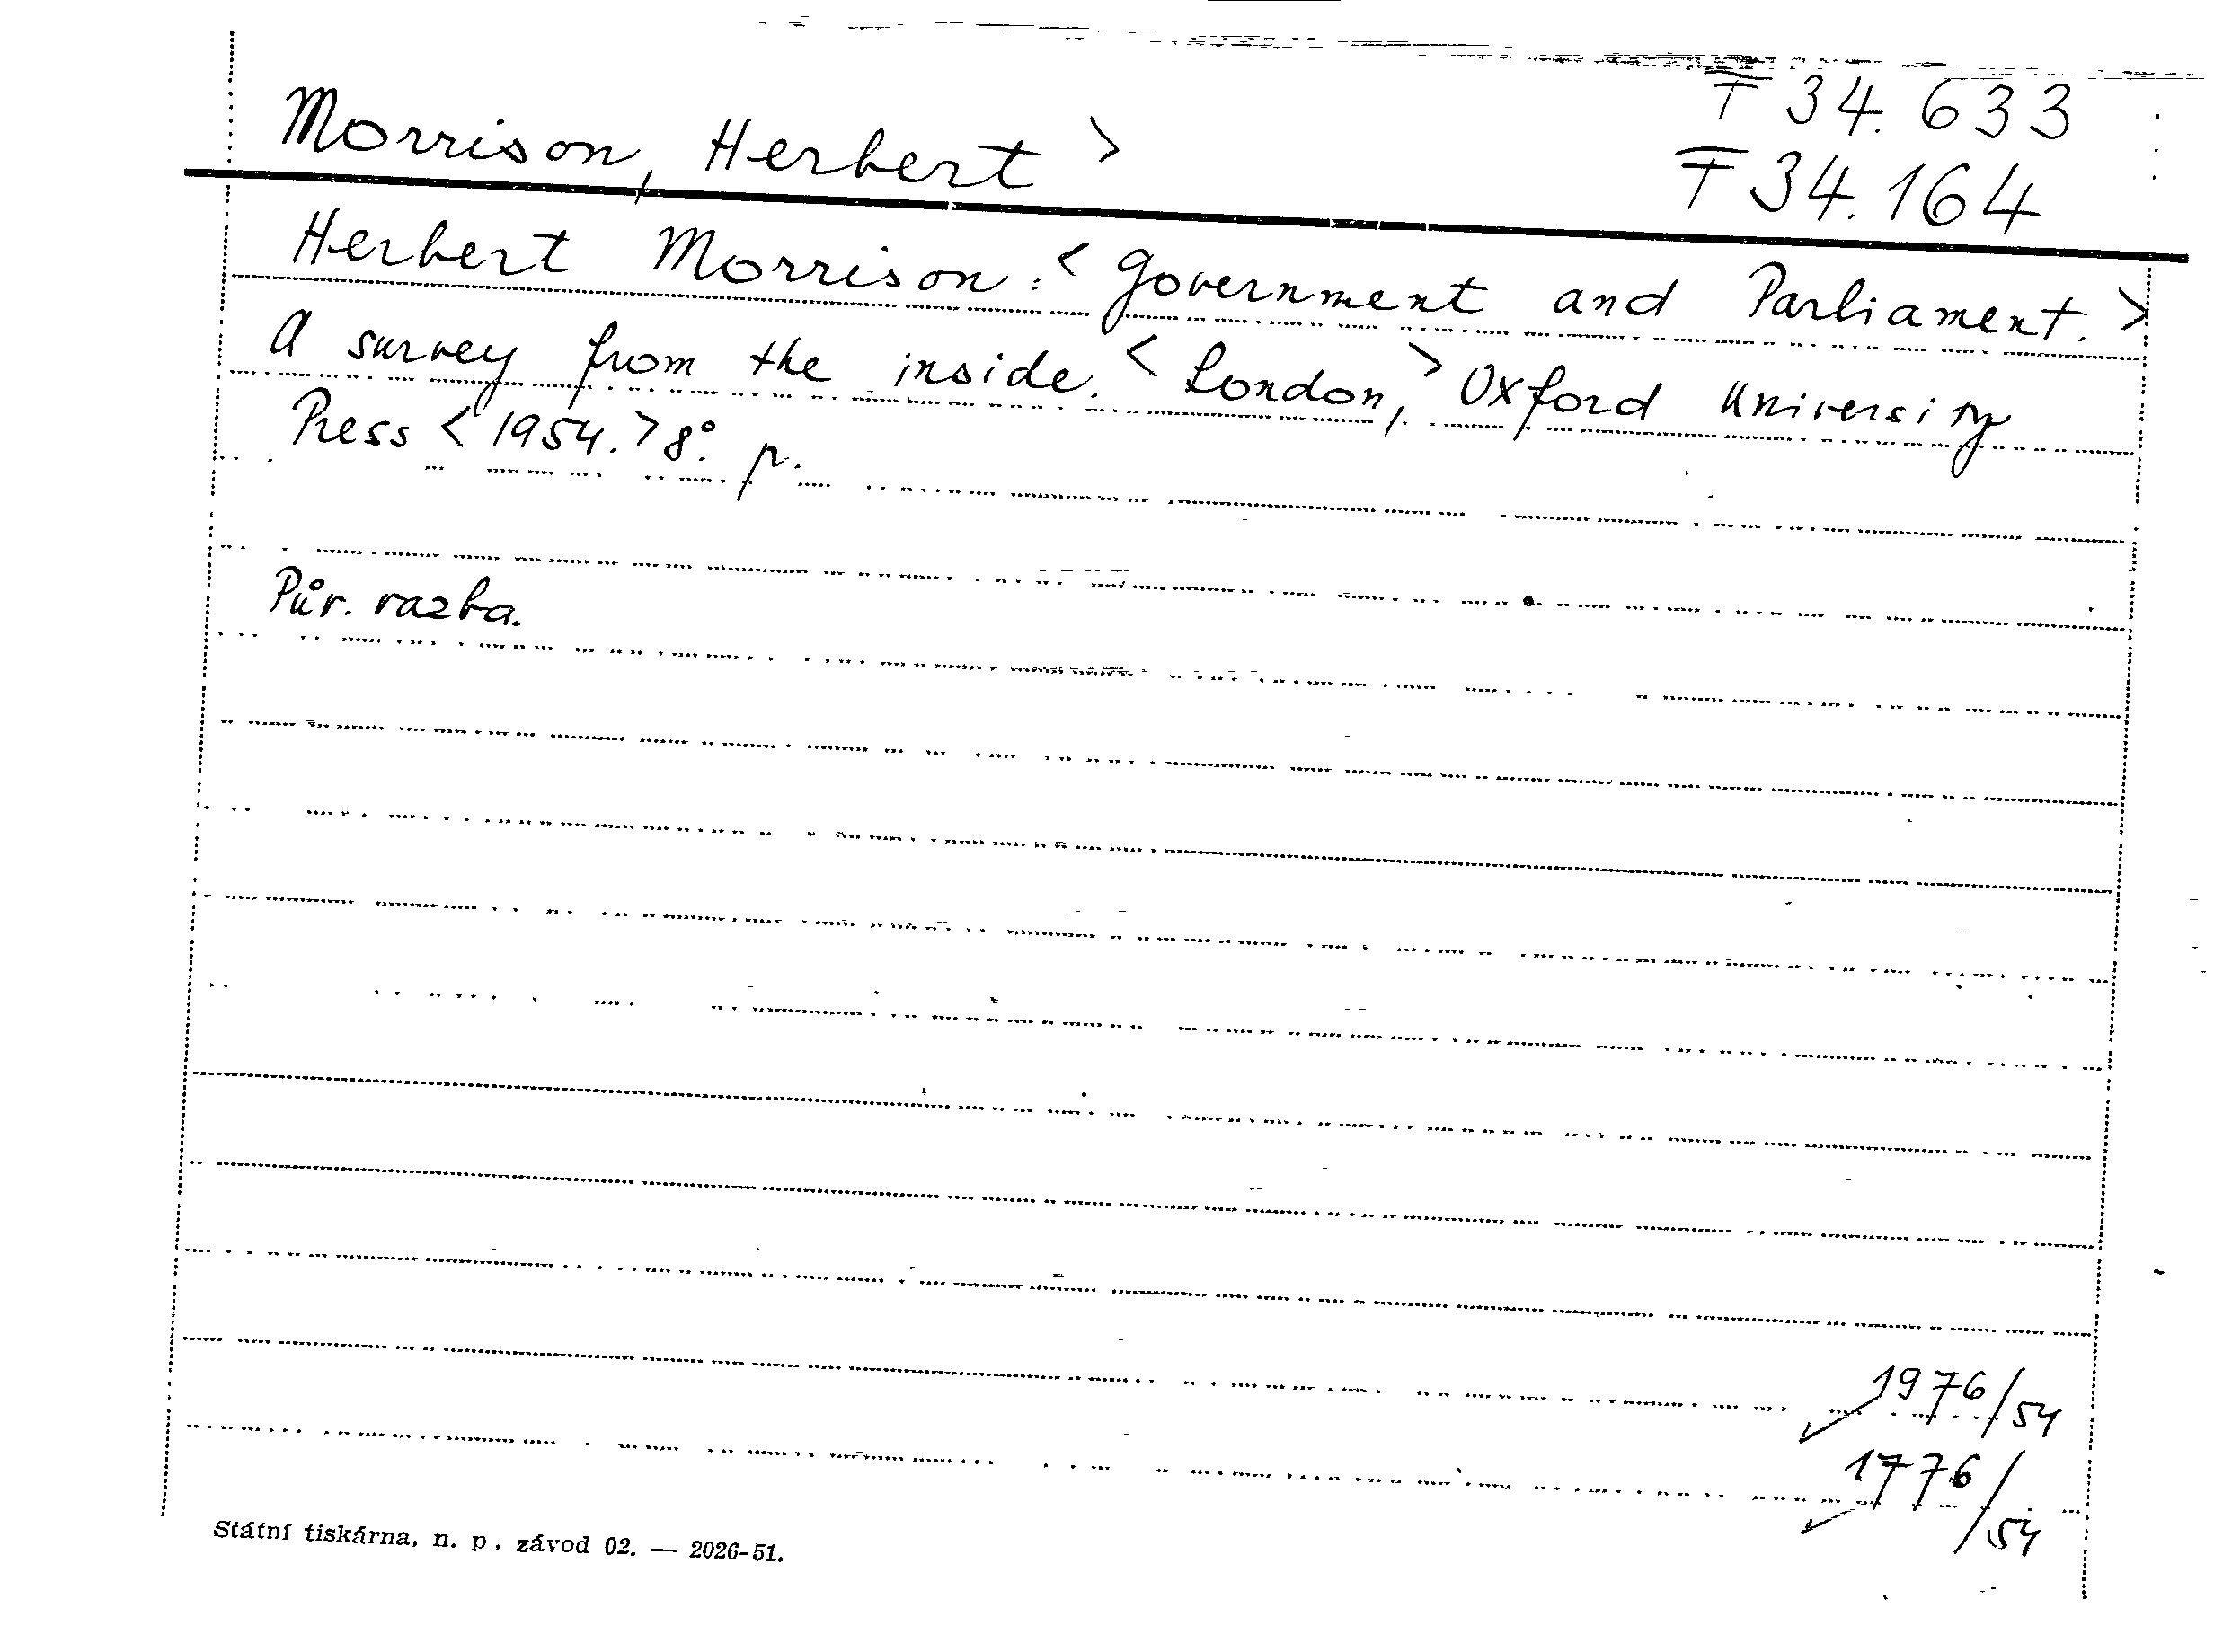 F 34.633
Morrison, Herbert >
F 34.164
Herbert Morrison: < Government and Parliament. >
A survey from the inside. < London, > Oxford University
Press < 1954. > 8°. p.
Pův. vazba.
1976/54
1776/54
Státní tiskárna, n. p., závod 02. — 2026-51.